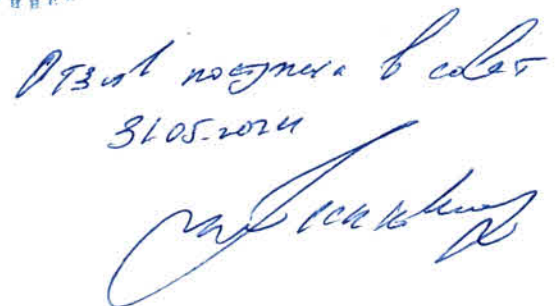 Отзыв поступил в совет
31.05.2024